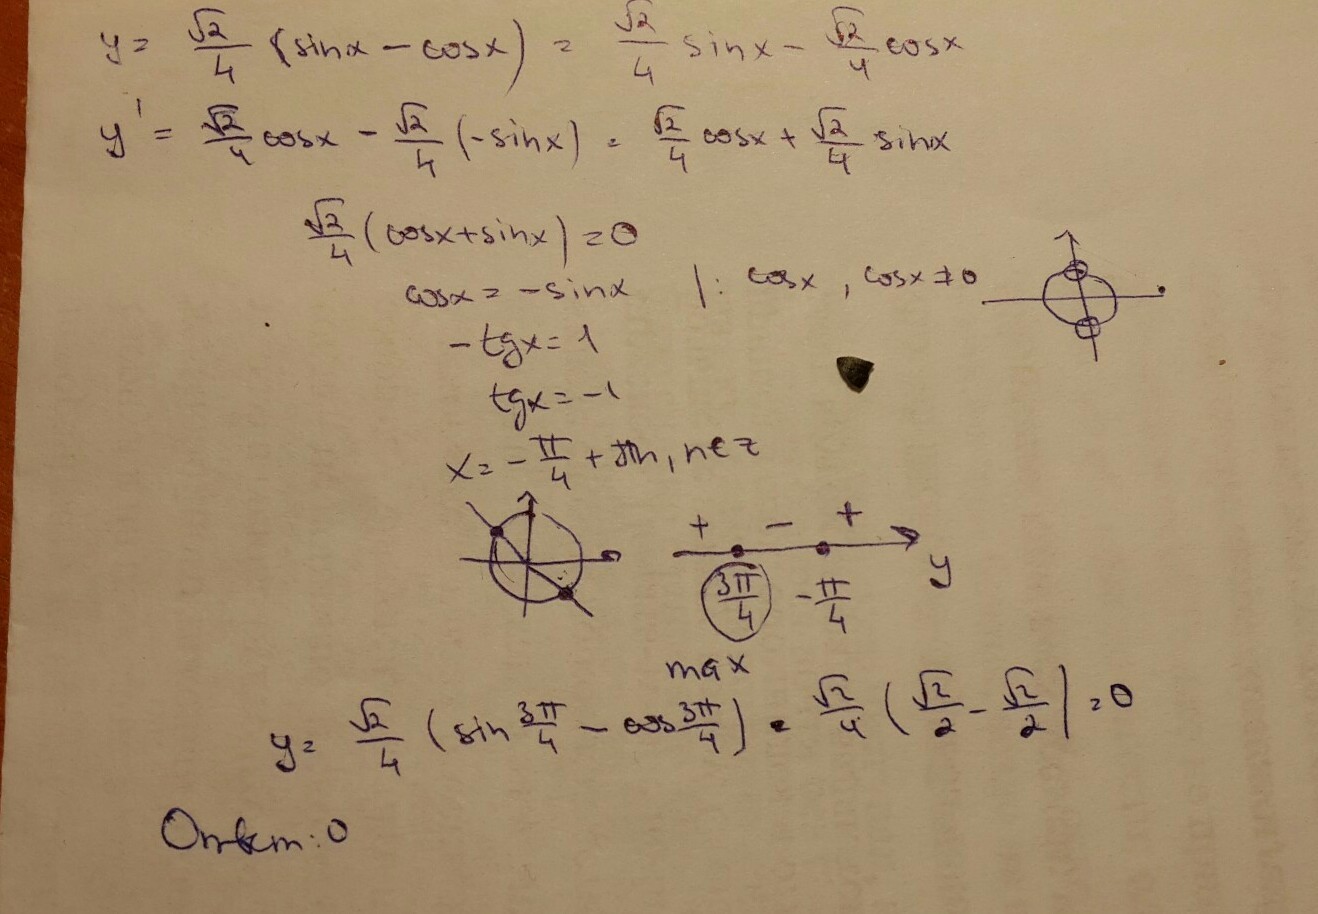 y = √2/4 (sinx − cosx) = √2/4 sinx − √2/4 cosx
y' = √2/4 cosx − √2/4 (−sinx) = √2/4 cosx + √2/4 sinx
√2/4 (cosx+sinx) = 0
cosx = −sinx |: cosx, cosx ≠ 0
−tgx = 1
tgx = −1
x = −π/4 + πn, n∈z
+ − +
3π/4 −π/4 y
max
y = √2/4 (sin 3π/4 − cos 3π/4) = √2/4 (√2/2 − √2/2) = 0
Ответ: 0